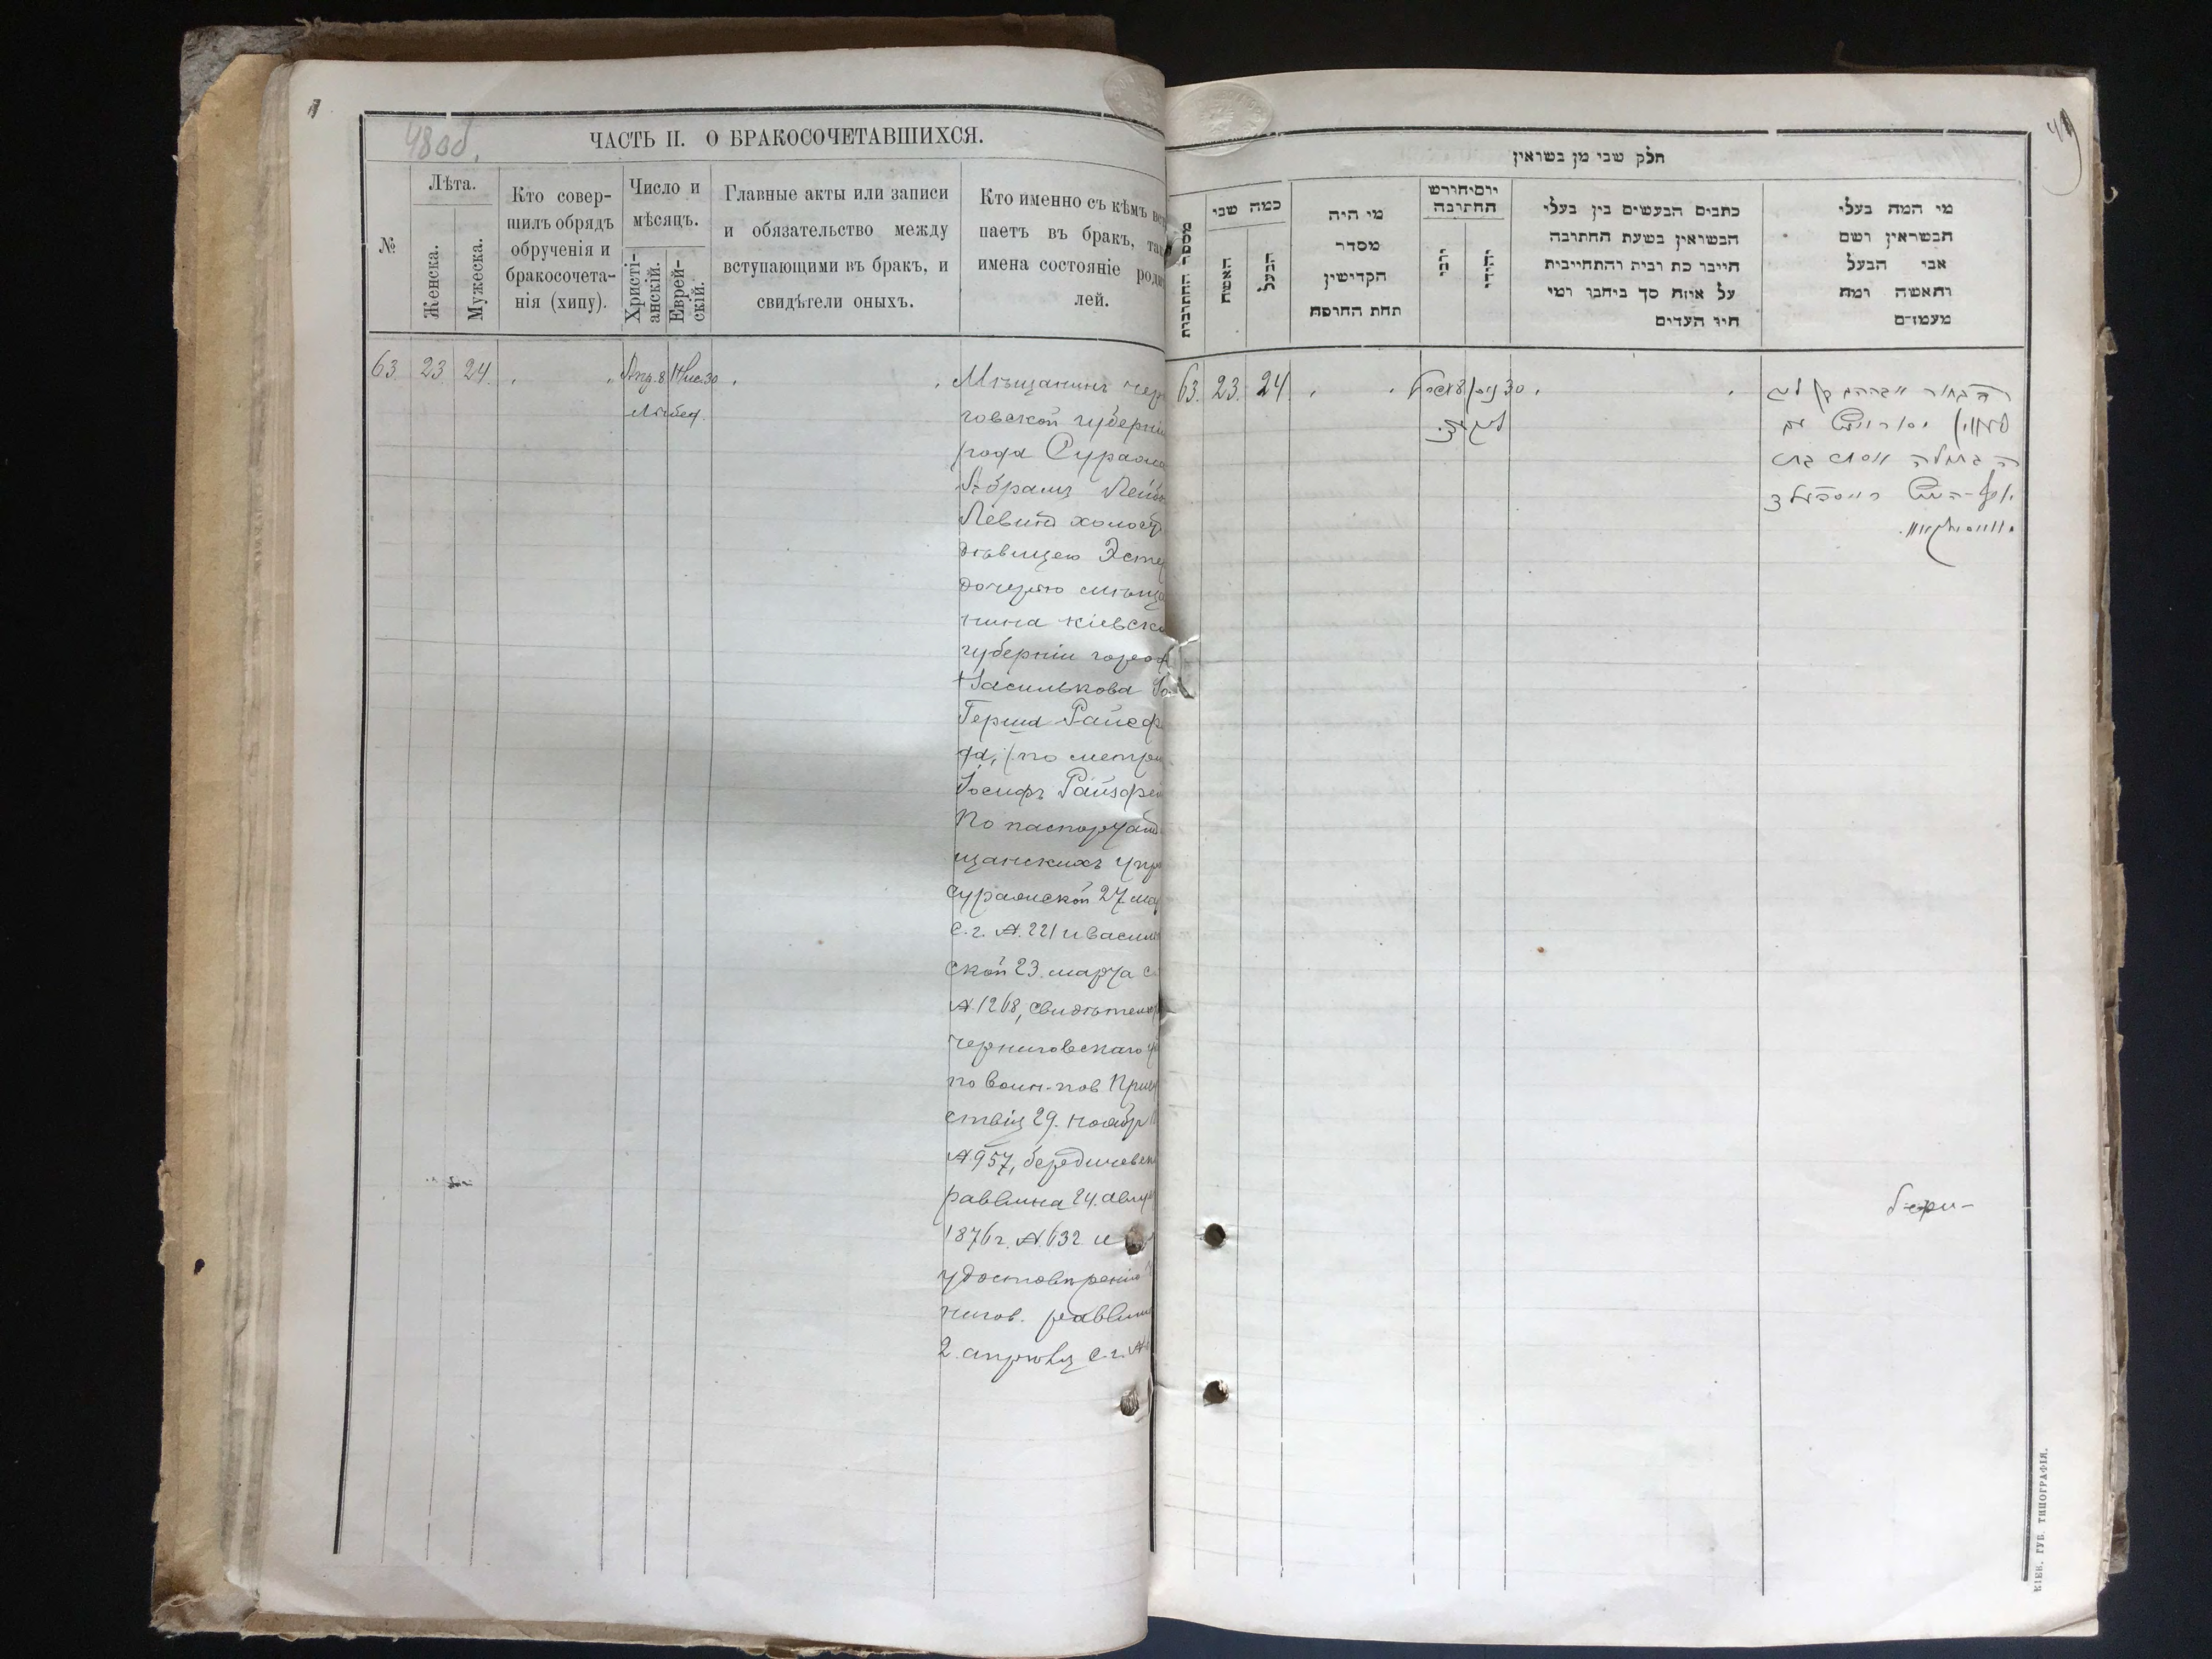 48 об.
ЧАСТЬ II. О БРАКОСОЧЕТАВШИХСЯ.
№
Лѣта.
Женска.
Мужеска.
Кто совер-
шилъ обрядъ
обрученія и
бракосочета-
нія (хипу).
Число и
мѣсяцъ.
Христі-
анскій.
Еврей-
скій.
Главные акты или записи
и обязательство между
вступающими въ бракъ, и
свидѣтели оныхъ.
Кто именно съ кѣмъ вст
паетъ въ бракъ, так
имена состояніе роди
лей.
63. 23. 24. Апр. 8 Нис. 30
Мѣщанинъ чер
говской губерніи
города Суража
Абрамъ Лейб
Левинъ холост
дѣвицею Эсте
дочерью мѣща
нина Кіевско
губерніи город
Василькова Іо
Герша Райсф
да, (по метри
Іосифъ Райзфе
По паспортам
щанскихъ Упр
Суражской 27 ма
с.г. №. 221 и Васил
ской 23. марта с
№ 1268, Свидѣтел
Черниговскаго
по воин-пов. Прис
ствія 29. ноябр
№. 957, бердичевск
раввина 24. авгу
1876 г. № 632 и
удостовѣренію
нигов. раввин
2. апрѣля с.г. №
49
חלק שני מן נשואין
מספר החתונות
כמה שני
האשה
הבעל
מי היה
מסדר
הקדישין
תחת החופה
יום וחורש
החתונה
כתבים הנעשים בין בעלי
הנשואין בשעת החתונה
היינו כת ובית והתחייבות
על איזה סך ביחבו ומי
חיו העדים
מי המה בעלי
הנשואין ושם
אבי הבעל
והאשה ומה
מעמדם
63. 23. 24. 30 ניסן
הבחור אברהם בן ליב
עם
הבתולה אסתר בת
יוסף-הירש
КІЕВ. ГУБ. ТИПОГРАФІЯ.